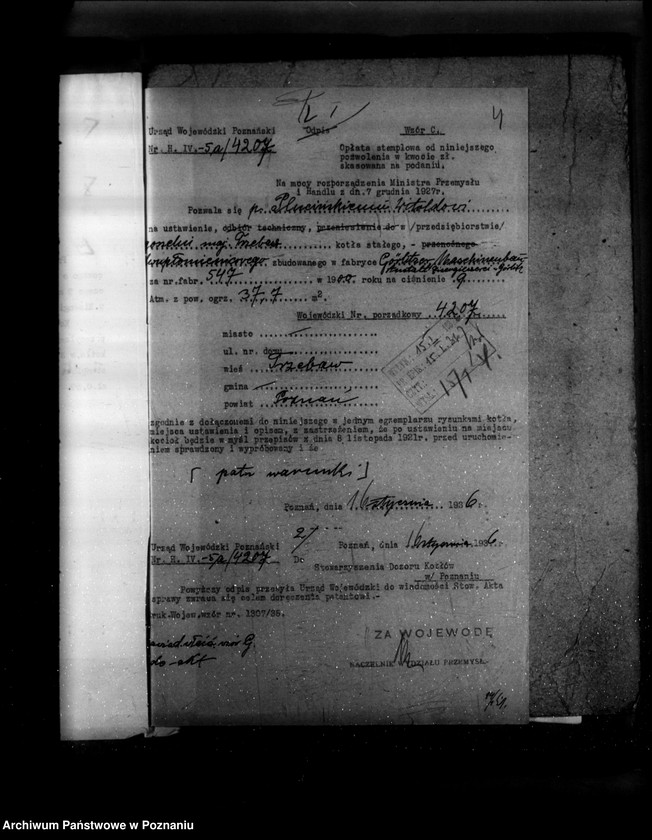 4
Urząd Wojewódzki Poznański Odpis Wzór C.
Nr. H. IV.-5a/4207 Opłata stemplowa od niniejszego
pozwolenia w kwocie zł.
skasowana na podaniu.
Na mocy rozporządzenia Ministra Przemysłu
i Handlu z dn.7 grudnia 1927r.
Pozwala się p. Plucińskiemu Witoldowi
na ustawienie, odbiór techniczny, przeniesienie do w /przedsiębiorstwie/
maj. Trzebaw kotła stałego, - przenośnego
zbudowanego w fabryce Görlitzer Maschinenbau
za nr.fabr. 547 w 1900 roku na ciśnienie 9
Atm. z pow. ogrz. 37,7 m².
Wojewódzki Nr. porządkowy 4207
miasto
ul. nr. domu
wieś Trzebaw
gmina
powiat Poznań
zgodnie z dołączonemi do niniejszego w jednym egzemplarzu rysunkami kotła,
miejsca ustawienia i opisem, z zastrzeżeniem, że po ustawieniu na miejscu
kocioł będzie w myśl przepisów z dnia 8 listopada 1921r. przed uruchomie-
niem sprawdzony i wypróbowany i że
[ patrz warunki ]
Poznań, dnia 16 stycznia 1936 r.
2/
Urząd Wojewódzki Poznański Poznań, dnia 16 stycznia 1936
Nr. H. IV.-5a/4207 Do
Stowarzyszenia Dozoru Kotłów
w/ Poznaniu
Powyższy odpis przesyła Urząd Wojewódzki do wiadomości Stow. Akta
sprawy zwraca się celem doręczenia patentowi.-
ruk.Wojew.wzór nr. 1307/35.
ZA WOJEWODĘ
NACZELNIK WYDZIAŁU PRZEMYSŁ.
Archiwum Państwowe w Poznaniu